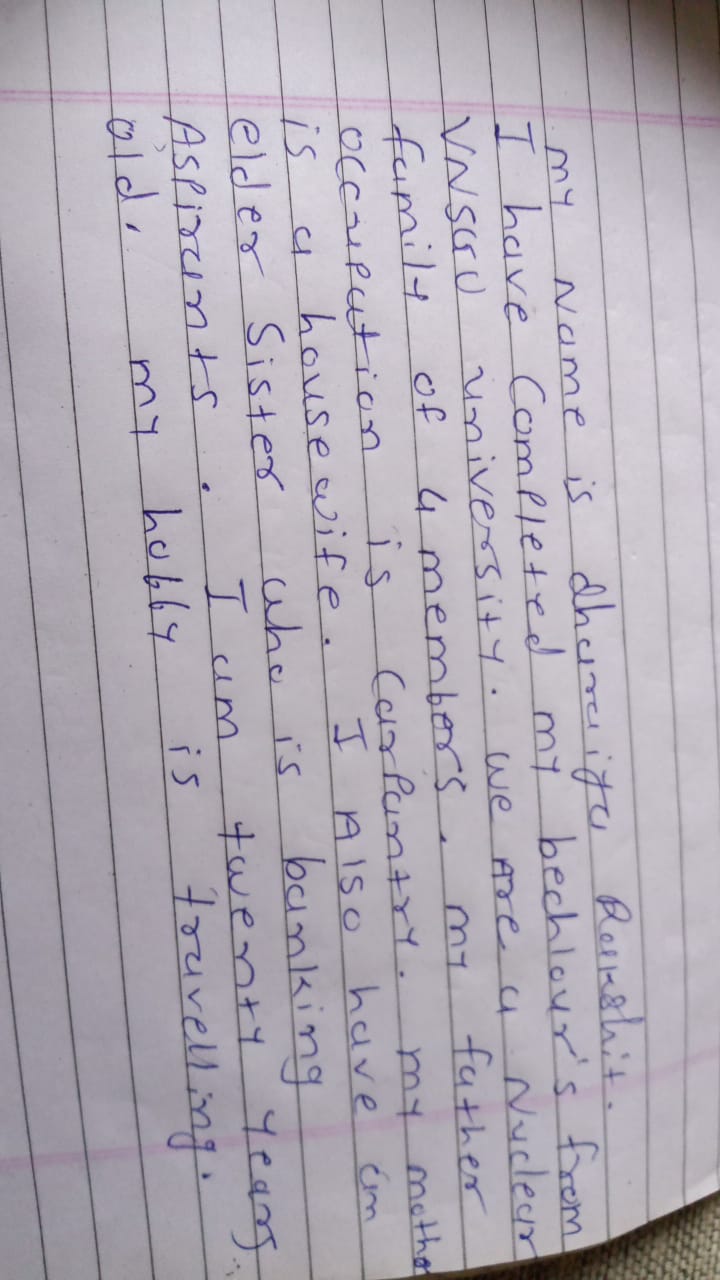 my Name is dharaiya Rakshit.
I have Completed my bechlour's from
VNSGU university. we Are a Nuclear
family of 4 members. my father
occupation is Carpantry. my mothe
is a housewife. I Also have an
elder Sister who is banking
Aspirants. I am twenty years
old. my hobby is travelling.